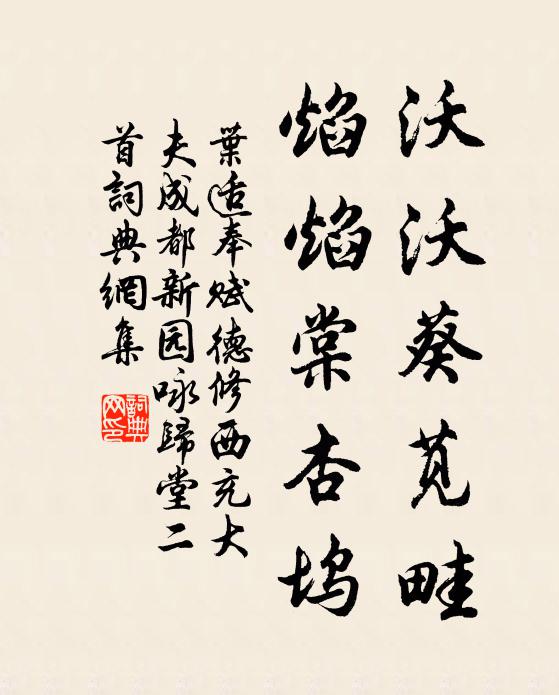 沃沃葵苋畦
焰焰棠杏坞
葉适奉赋德修西充大
夫成都新园咏歸堂二
首詞典網集
詞典
网印